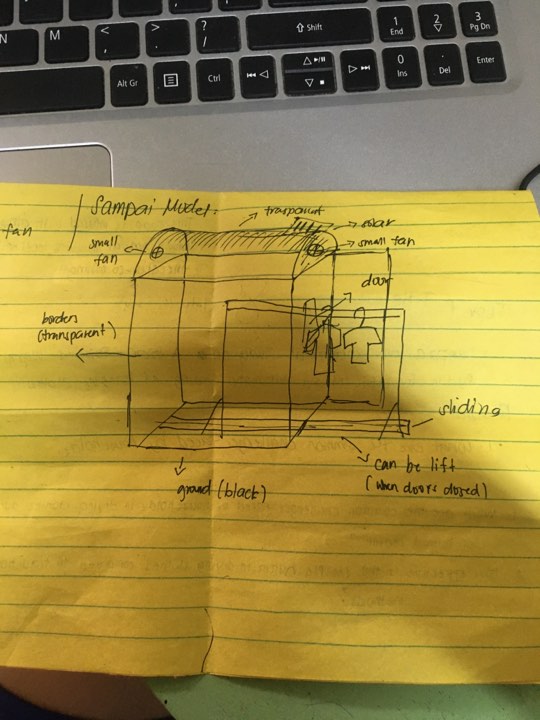 N
M
<
,
>
.
?
/
⇧ Shift
1
End
2
▽
3
Pg Dn
Alt Gr
Ctrl
0
Ins
.
Del
Enter
fan
Sampai Model:
trasparent
solar
small fan
small
fan
door
borders
(transparent)
sliding
can be lift
(when doors closed)
ground (black)